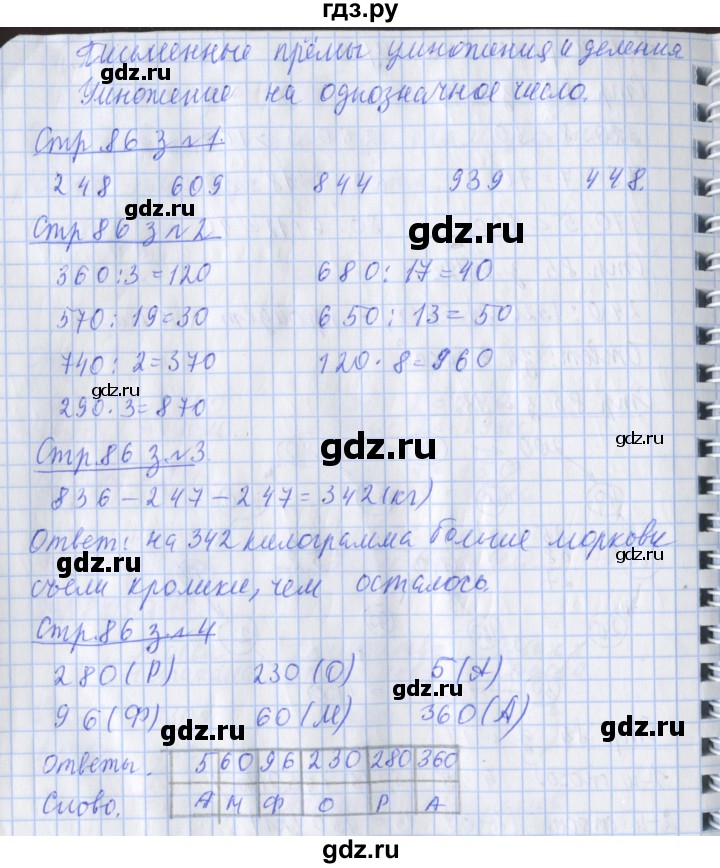 гдз.ру
Письменные прёмы умножения и деления
gdz.ru
Умножение на однозначное число.
Стр 86 з №1.
248 609 844 939 448.
gdz.ru
Стр 86 з №2
gdz.ru
360:3=120 680:17=40
gdz.ru
570:19=30 650:13=50
740:2=370 120·8=960
gdz.ru
290·3=870
Стр.86 з №3
gdz.ru
gdz.ru
836-247-247=342(кг)
Ответ: на 342 килограмма больше моркови
gdz.ru
gdz.ru
съели кролики, чем осталось.
Стр.86 з №4
280(Р) 230(О) 5(А)
gdz.ru
96(Ф) 60(М) 360(А)
gdz.ru
gdz.ru
Ответы. 5 60 96 230 280 360
Слово. А М Ф О Р А
gdz.ru